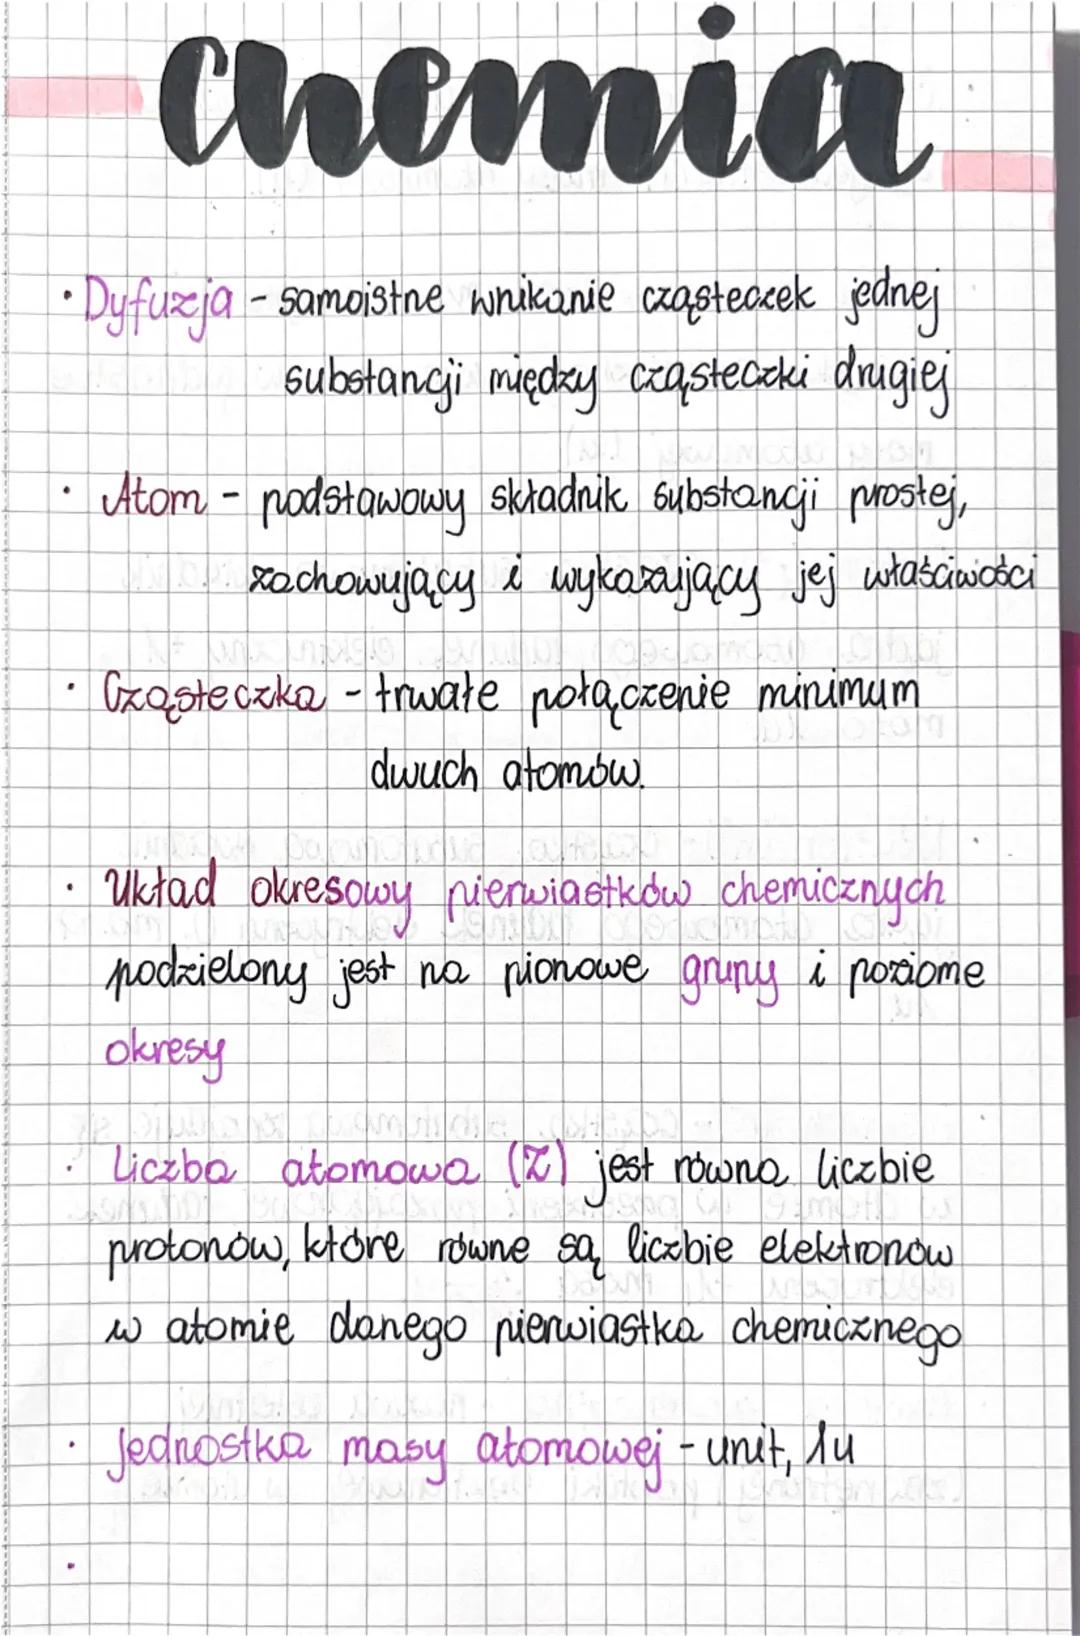 chemia
· Dyfuzja - samoistne wnikanie cząsteczek jednej
substancji między cząsteczki drugiej
· Atom - podstawowy składnik substancji prostej,
zachowujący i wykazujący jej właściwości
· Cząsteczka - trwałe połączenie minimum
dwuch atomów.
· Układ okresowy pierwiastków chemicznych
podzielony jest na pionowe grupy i poziome
okresy
· Liczba atomowa (Z) jest równa liczbie
protonów, które równe są liczbie elektronów
w atomie danego pierwiastka chemicznego
· Jednostka masy atomowej - unit, 1u
·